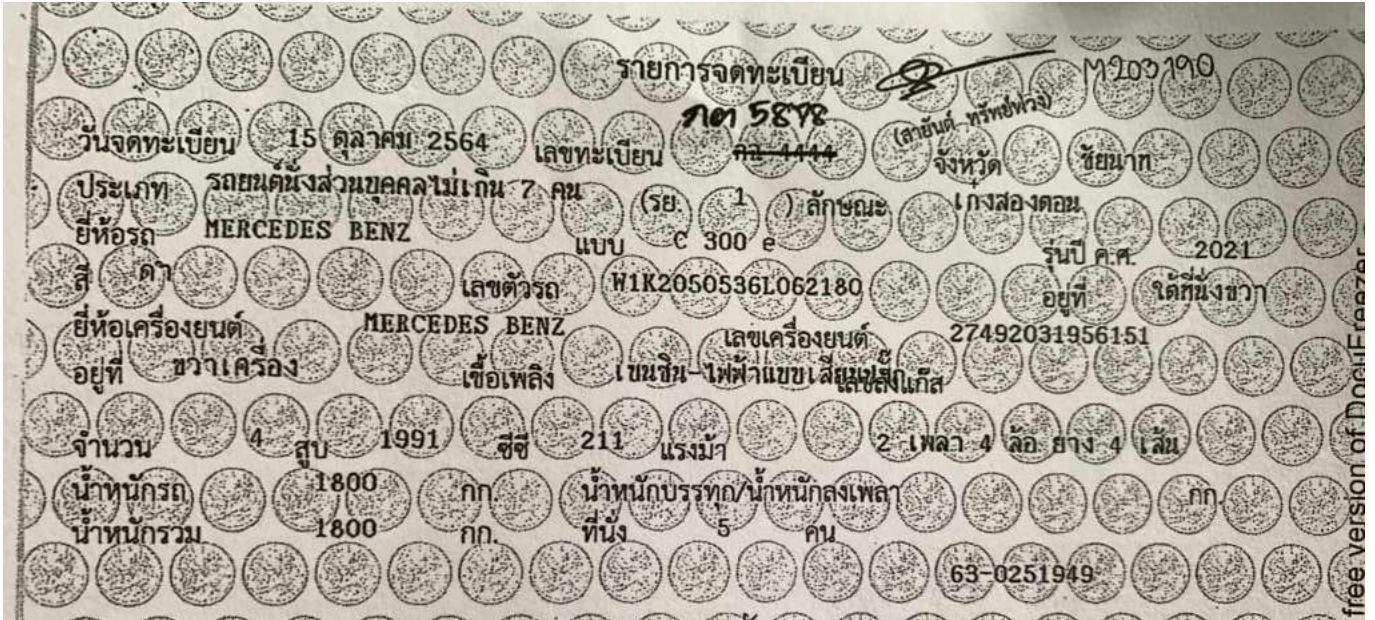 รายการจดทะเบียน M203190
กต 5878 (สายันต์ ทรัพย์พ่วง)
วันจดทะเบียน 15 ตุลาคม 2564 เลขทะเบียน กว 4444 จังหวัด ชัยนาท
ประเภท รถยนต์นั่งส่วนบุคคลไม่เกิน 7 คน (รย. 1 ) ลักษณะ เก๋งสองตอน
ยี่ห้อรถ MERCEDES BENZ แบบ C 300 e รุ่นปี ค.ศ. 2021
สี ดำ เลขตัวรถ W1K2050536L062180 อยู่ที่ ใต้ที่นั่งขวา
ยี่ห้อเครื่องยนต์ MERCEDES BENZ เลขเครื่องยนต์ 27492031956151
อยู่ที่ ขวาเครื่อง เชื้อเพลิง เบนซิน-ไฟฟ้าแบบเสียบปลั๊ก เลขถังแก๊ส
จำนวน 4 สูบ 1991 ซีซี 211 แรงม้า 2 เพลา 4 ล้อ ยาง 4 เส้น
น้ำหนักรถ 1800 กก. น้ำหนักบรรทุก/น้ำหนักลงเพลา กก.
น้ำหนักรวม 1800 กก. ที่นั่ง 5 คน
63-0251949
free version of DocuFreezer